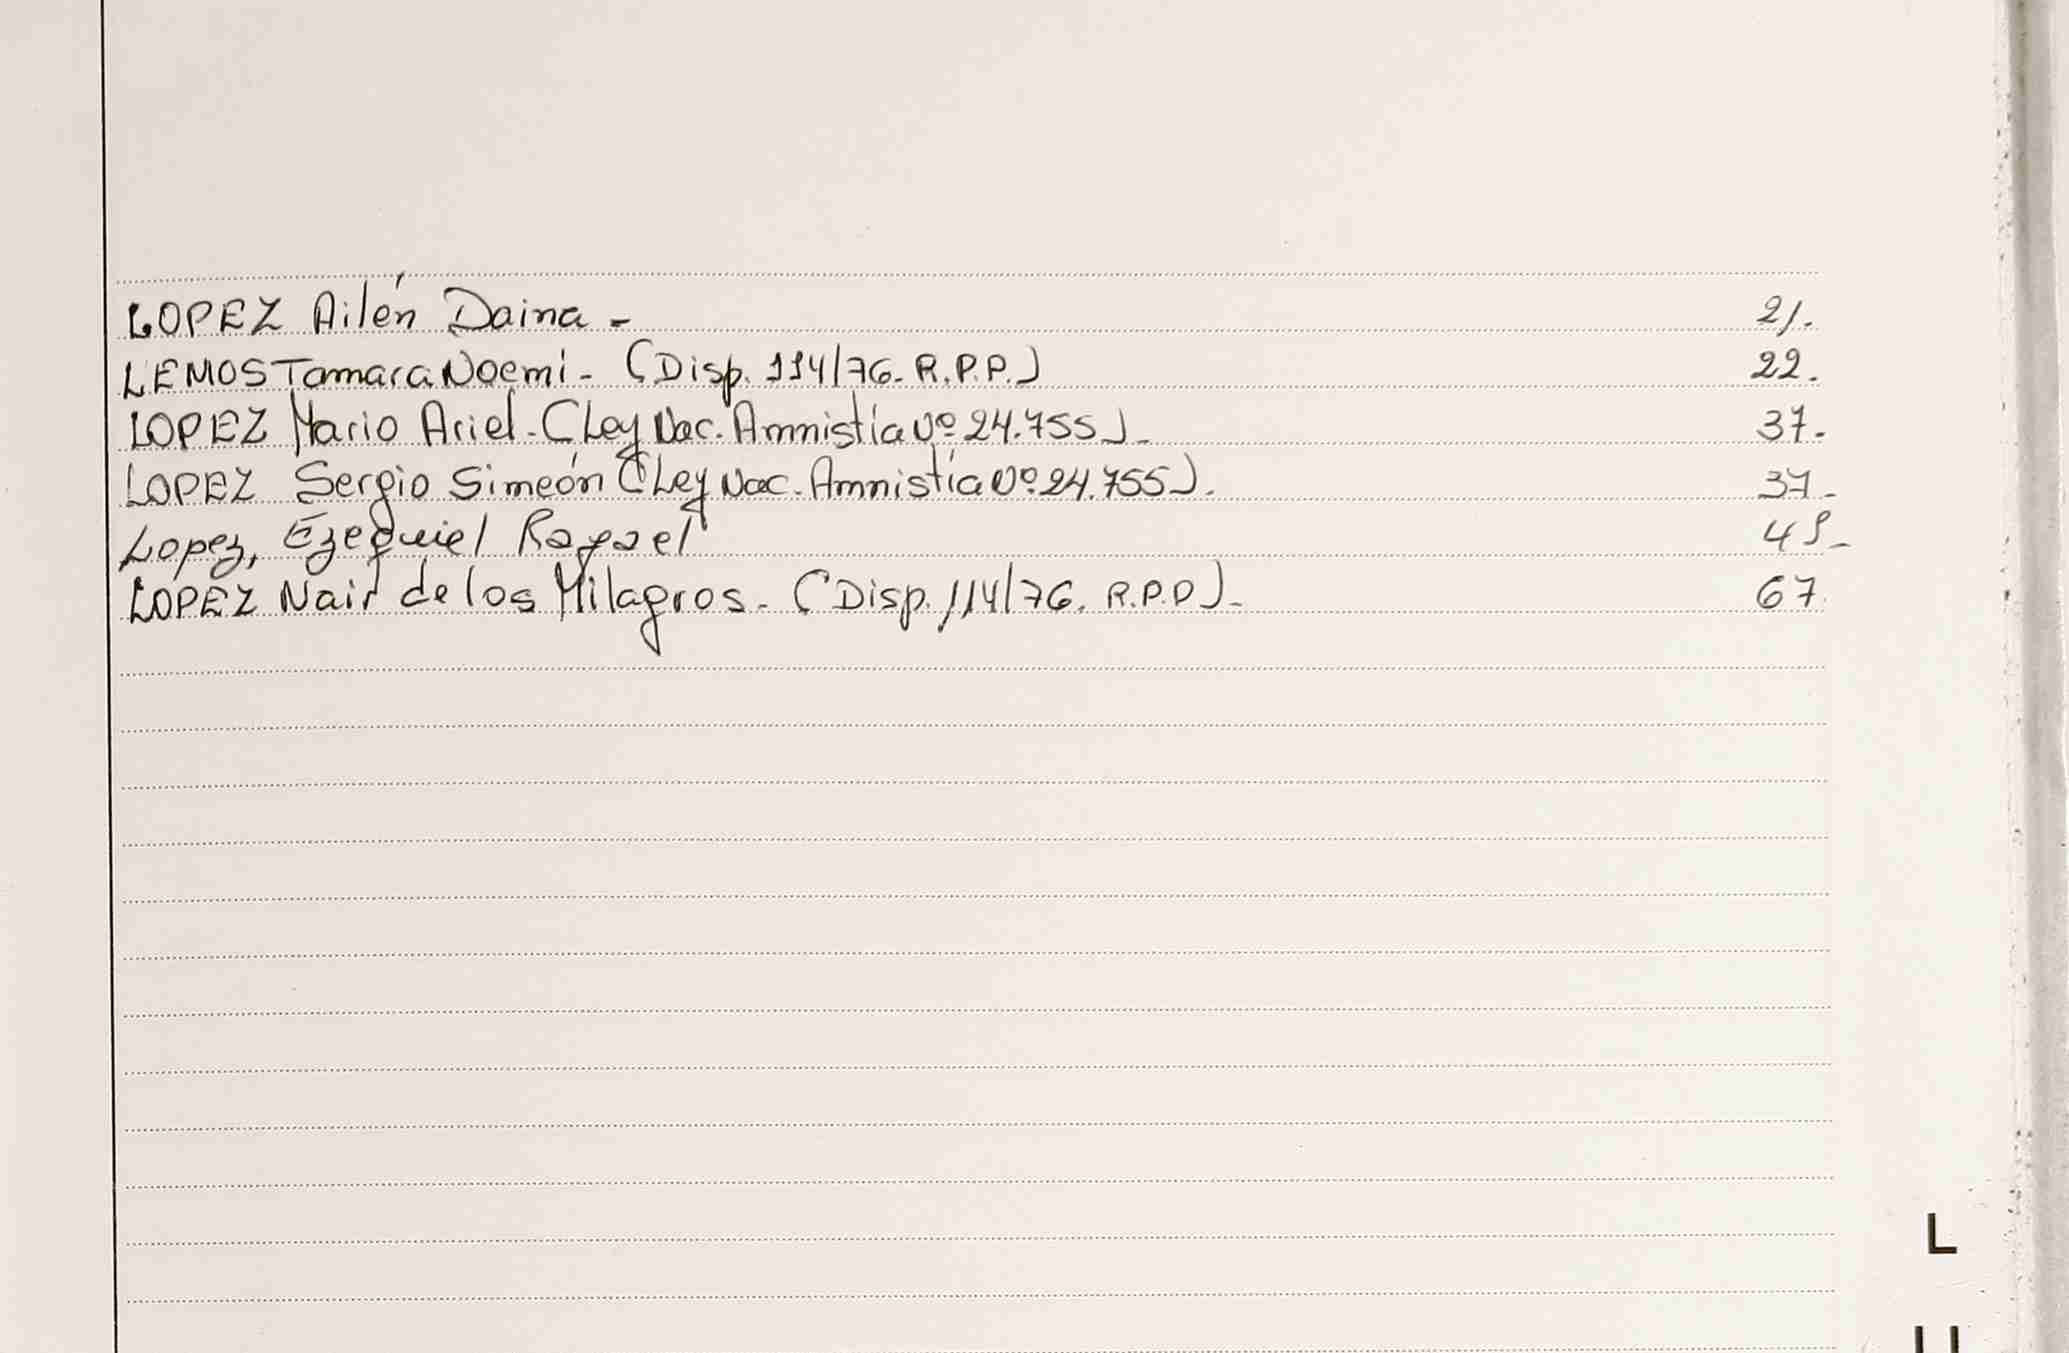 LOPEZ Ailén Daina - 21.
LEMOS Tamara Noemi - (Disp. 114/76. R.P.P.) 22.
LOPEZ Mario Ariel - (Ley Nac. Amnistía Nº 24.755) - 37.
LOPEZ Sergio Simeón (Ley Nac. Amnistía Nº 24.755). 37 -
Lopez, Ezequiel Rafael
LOPEZ Nair de los Milagros - (Disp. 114/76. R.P.P) - 67.
L